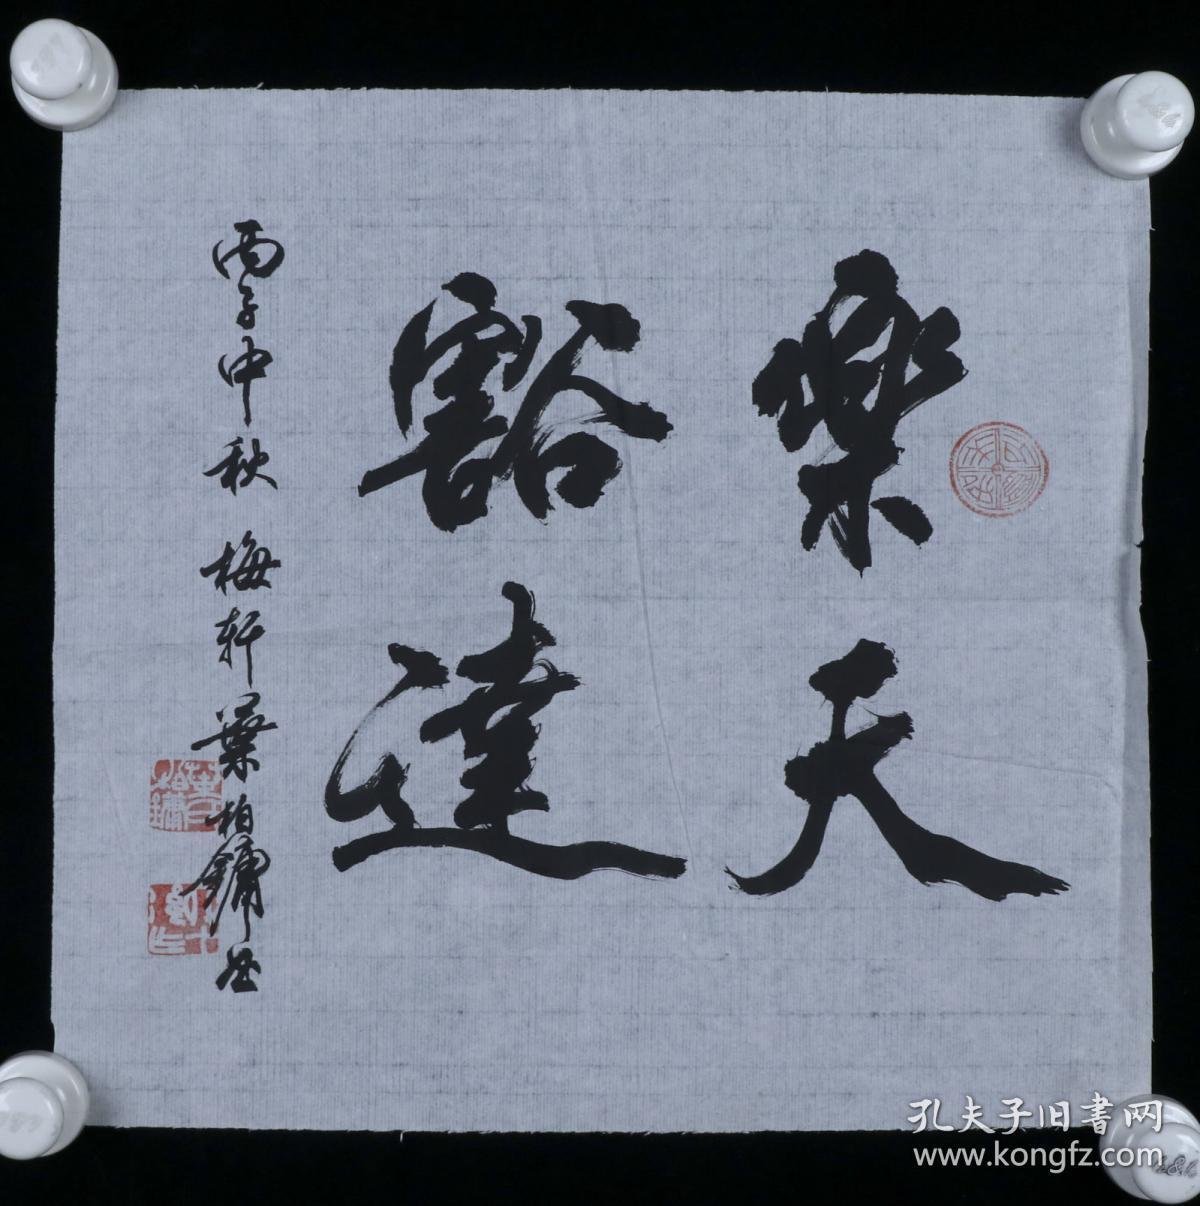 樂天
豁達
丙子中秋 梅軒葉柏鏞书
孔夫子旧書网
www.kongfz.com